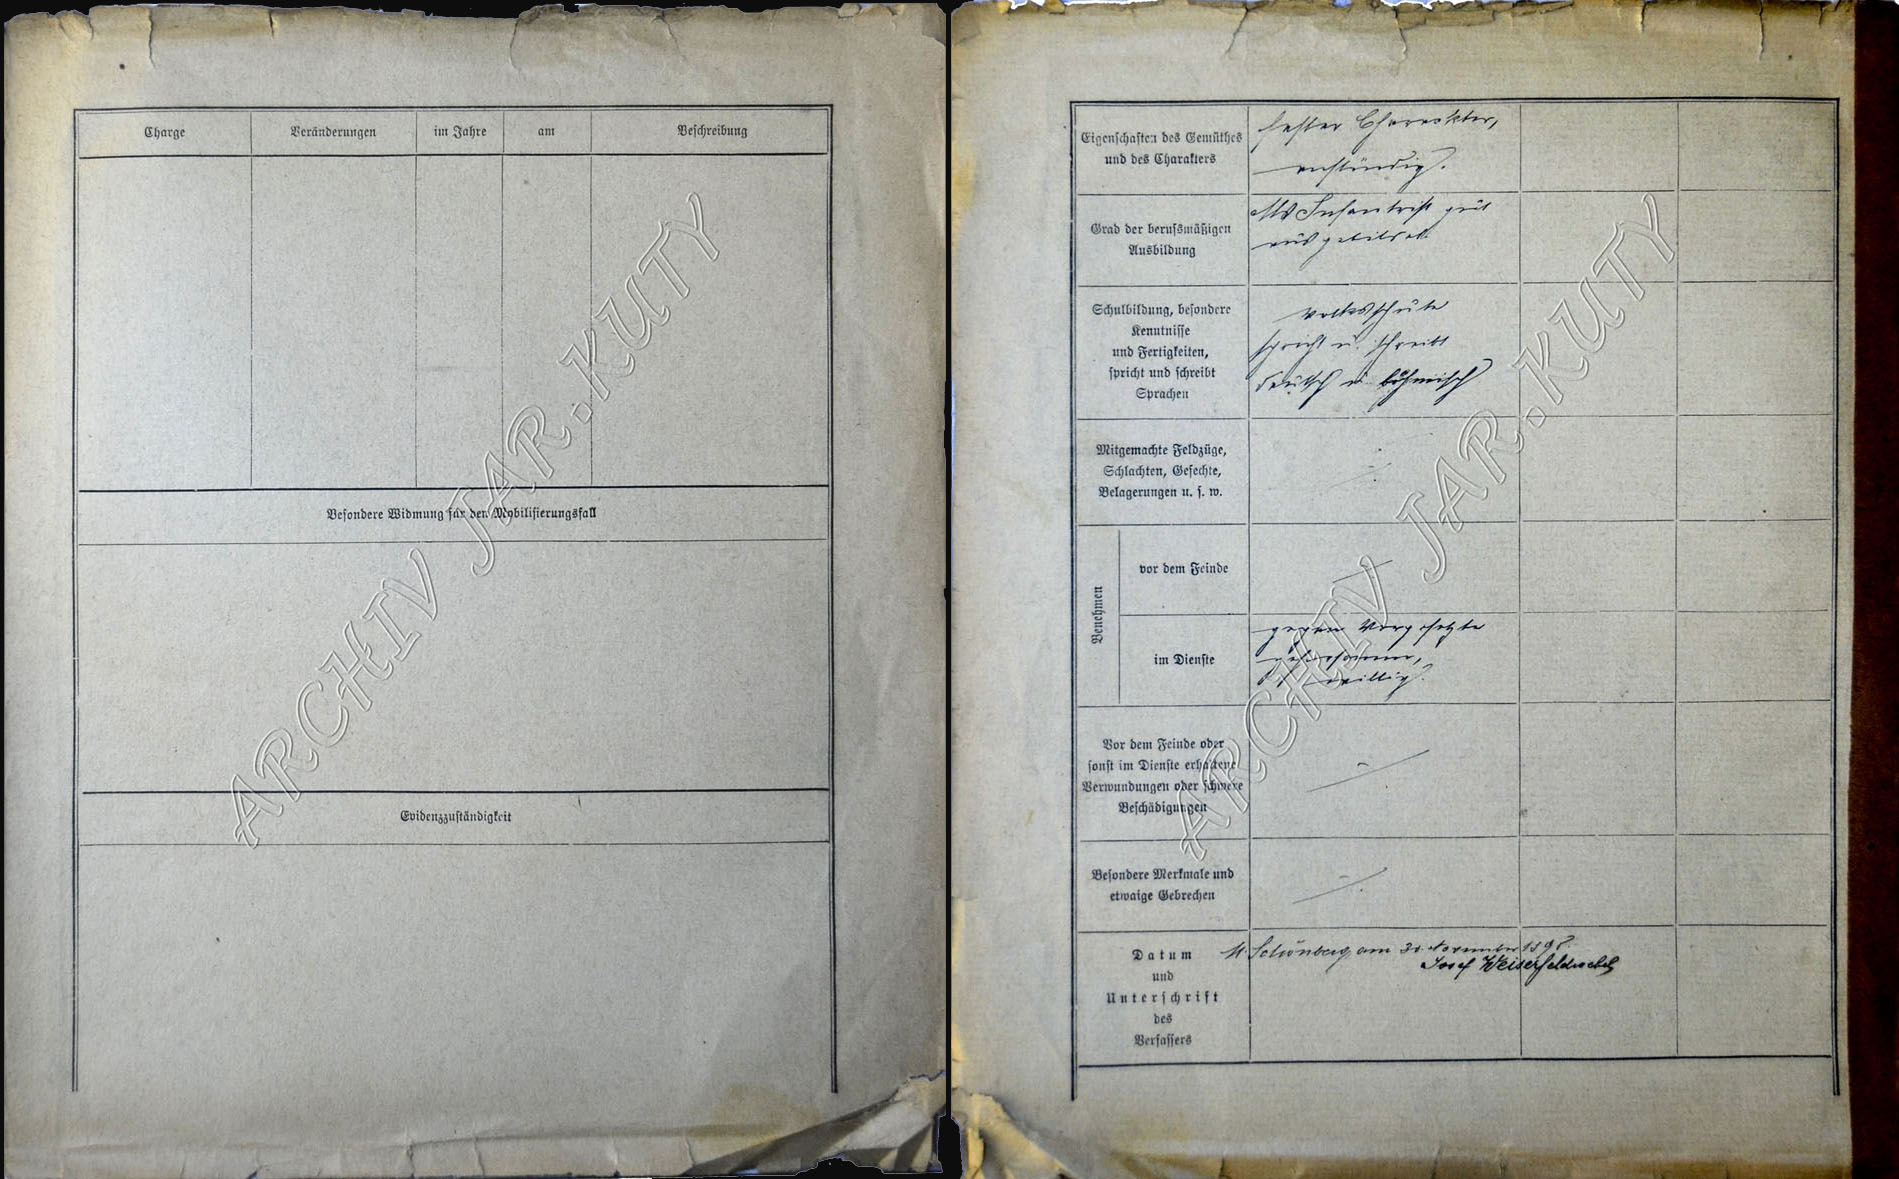 Charge
Veränderungen
im Jahre
am
Beschreibung
Besondere Widmung für den Mobilisierungsfall
Evidenzzuständigkeit
ARCHIV JAR.KUTY
Eigenschaften des Gemüthes
und des Charakters
fester Charakter,
anständig.
Grad der berufsmäßigen
Ausbildung
Als Infanterist gut
ausgebildet.
Schulbildung, besondere
Kenntnisse
und Fertigkeiten,
spricht und schreibt
Sprachen
Volksschule
spricht u. schreibt
deutsch u. böhmisch
Mitgemachte Feldzüge,
Schlachten, Gefechte,
Belagerungen u. s. w.
Benehmen
vor dem Feinde
im Dienste
gegen Vorgesetzte
gehorsam,
willig.
Vor dem Feinde oder
sonst im Dienste erhaltene
Verwundungen oder schwere
Beschädigungen
Besondere Merkmale und
etwaige Gebrechen
Datum
und
Unterschrift
des
Verfassers
M. Schönberg, am November
Josef Weiser Feldwebel
ARCHIV JAR.KUTY